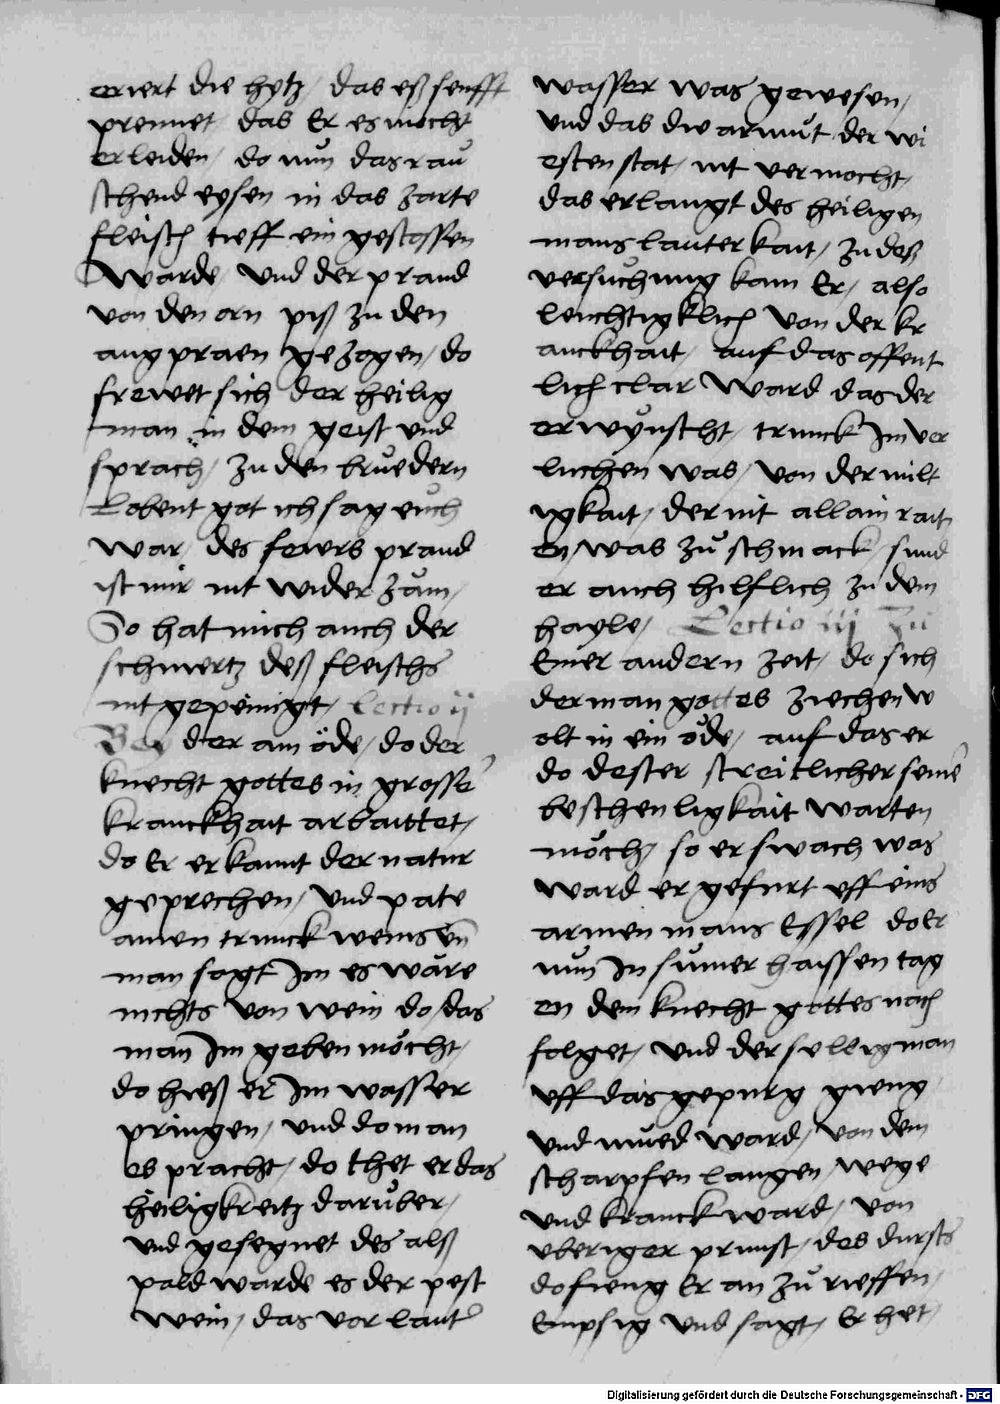 eriert die hytz / das eß senfft
prennet / das Er es mocht
erleiden / do nun das rau
schend eysen in das zarte
fleisch tieff ein gestossen
Warde / Vnd der prand
von den orn piß zu den
augpraen gezogen / do
frewet sich der heilig
man in dem geist vnd
sprach / zu den bruedern
Lobent got ich sag euch
war / des fewrs prand
ist mir nit wider zäm /
So hat mich auch der
schmertz deß fleischs
nit gepeinigt / Lectio ij
Bey der am öde / do der
knecht gottes in grosse
kranckhait arbaittet /
do Er erkannt der natur
geprechen / Vnd pate
ainen trunck weins
man sagt Im es wäre
nichts von wein do / das
man Im geben möcht /
do hieß er Im wasser
pringen / vnd do man
es pracht / do thet er das
heilig kreitz darüber /
vnd gesegnet des alß
pald warde es der pest
wein / das vor lauter
wasser was gewesen /
Vnd das die armut der wi
esten stat / nit vermocht /
das erlangt des heiligen
mans lauterkait / zu deß
versuchung kam Er / also
leuchtigklich von der kr
anckhait / auf das offent
lich clar Ward das der
erwünscht / trunck Im ver
lichen was / von der milt
igkait / der nit allain rait
en / was zu schmack / sund
er auch hilflich zu dem
hayle / Lectio iij Zu
Einer andern zeit / do sich
der man gottes ziechen w
olt in ein öde / auf das er
do dester streitlicher seine
beschenligkait warten
möch / so er swach was
ward er gefürt vff eins
armen mans Essel do Er
nun In sumer haissen tag
en dem knecht gottes nach
folget / vnd der selbig man
vff das gepurg gieng
vnd mued ward / von dem
scharpfen langen / wege
vnd kranck ward / von
vberiger prunst / des dursts
do fieng Er an zu rieffen /
Empsig vnd sagt / Er het /
Digitalisierung gefördert durch die Deutsche Forschungsgemeinschaft - DFG